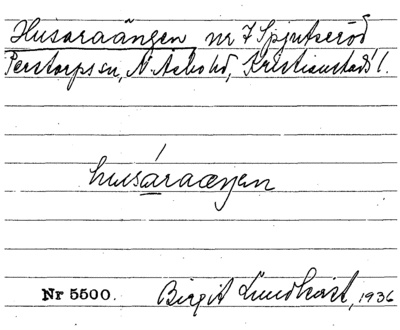 Husaraängen nr 7 Spjutseröd
Perstorps sn, N. Åsbo hd, Kristianstads l.
husáraæŋen
Nr 5500. Birgit Lundkvist, 1936